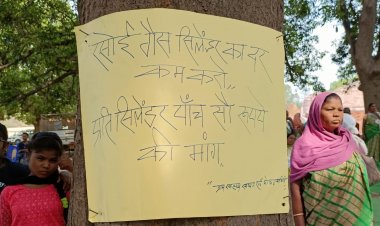 रसोई गैस सिलेंडर का दर
कम करो,,
प्रति सिलेंडर पाँच सौ रूपये
की मांग.